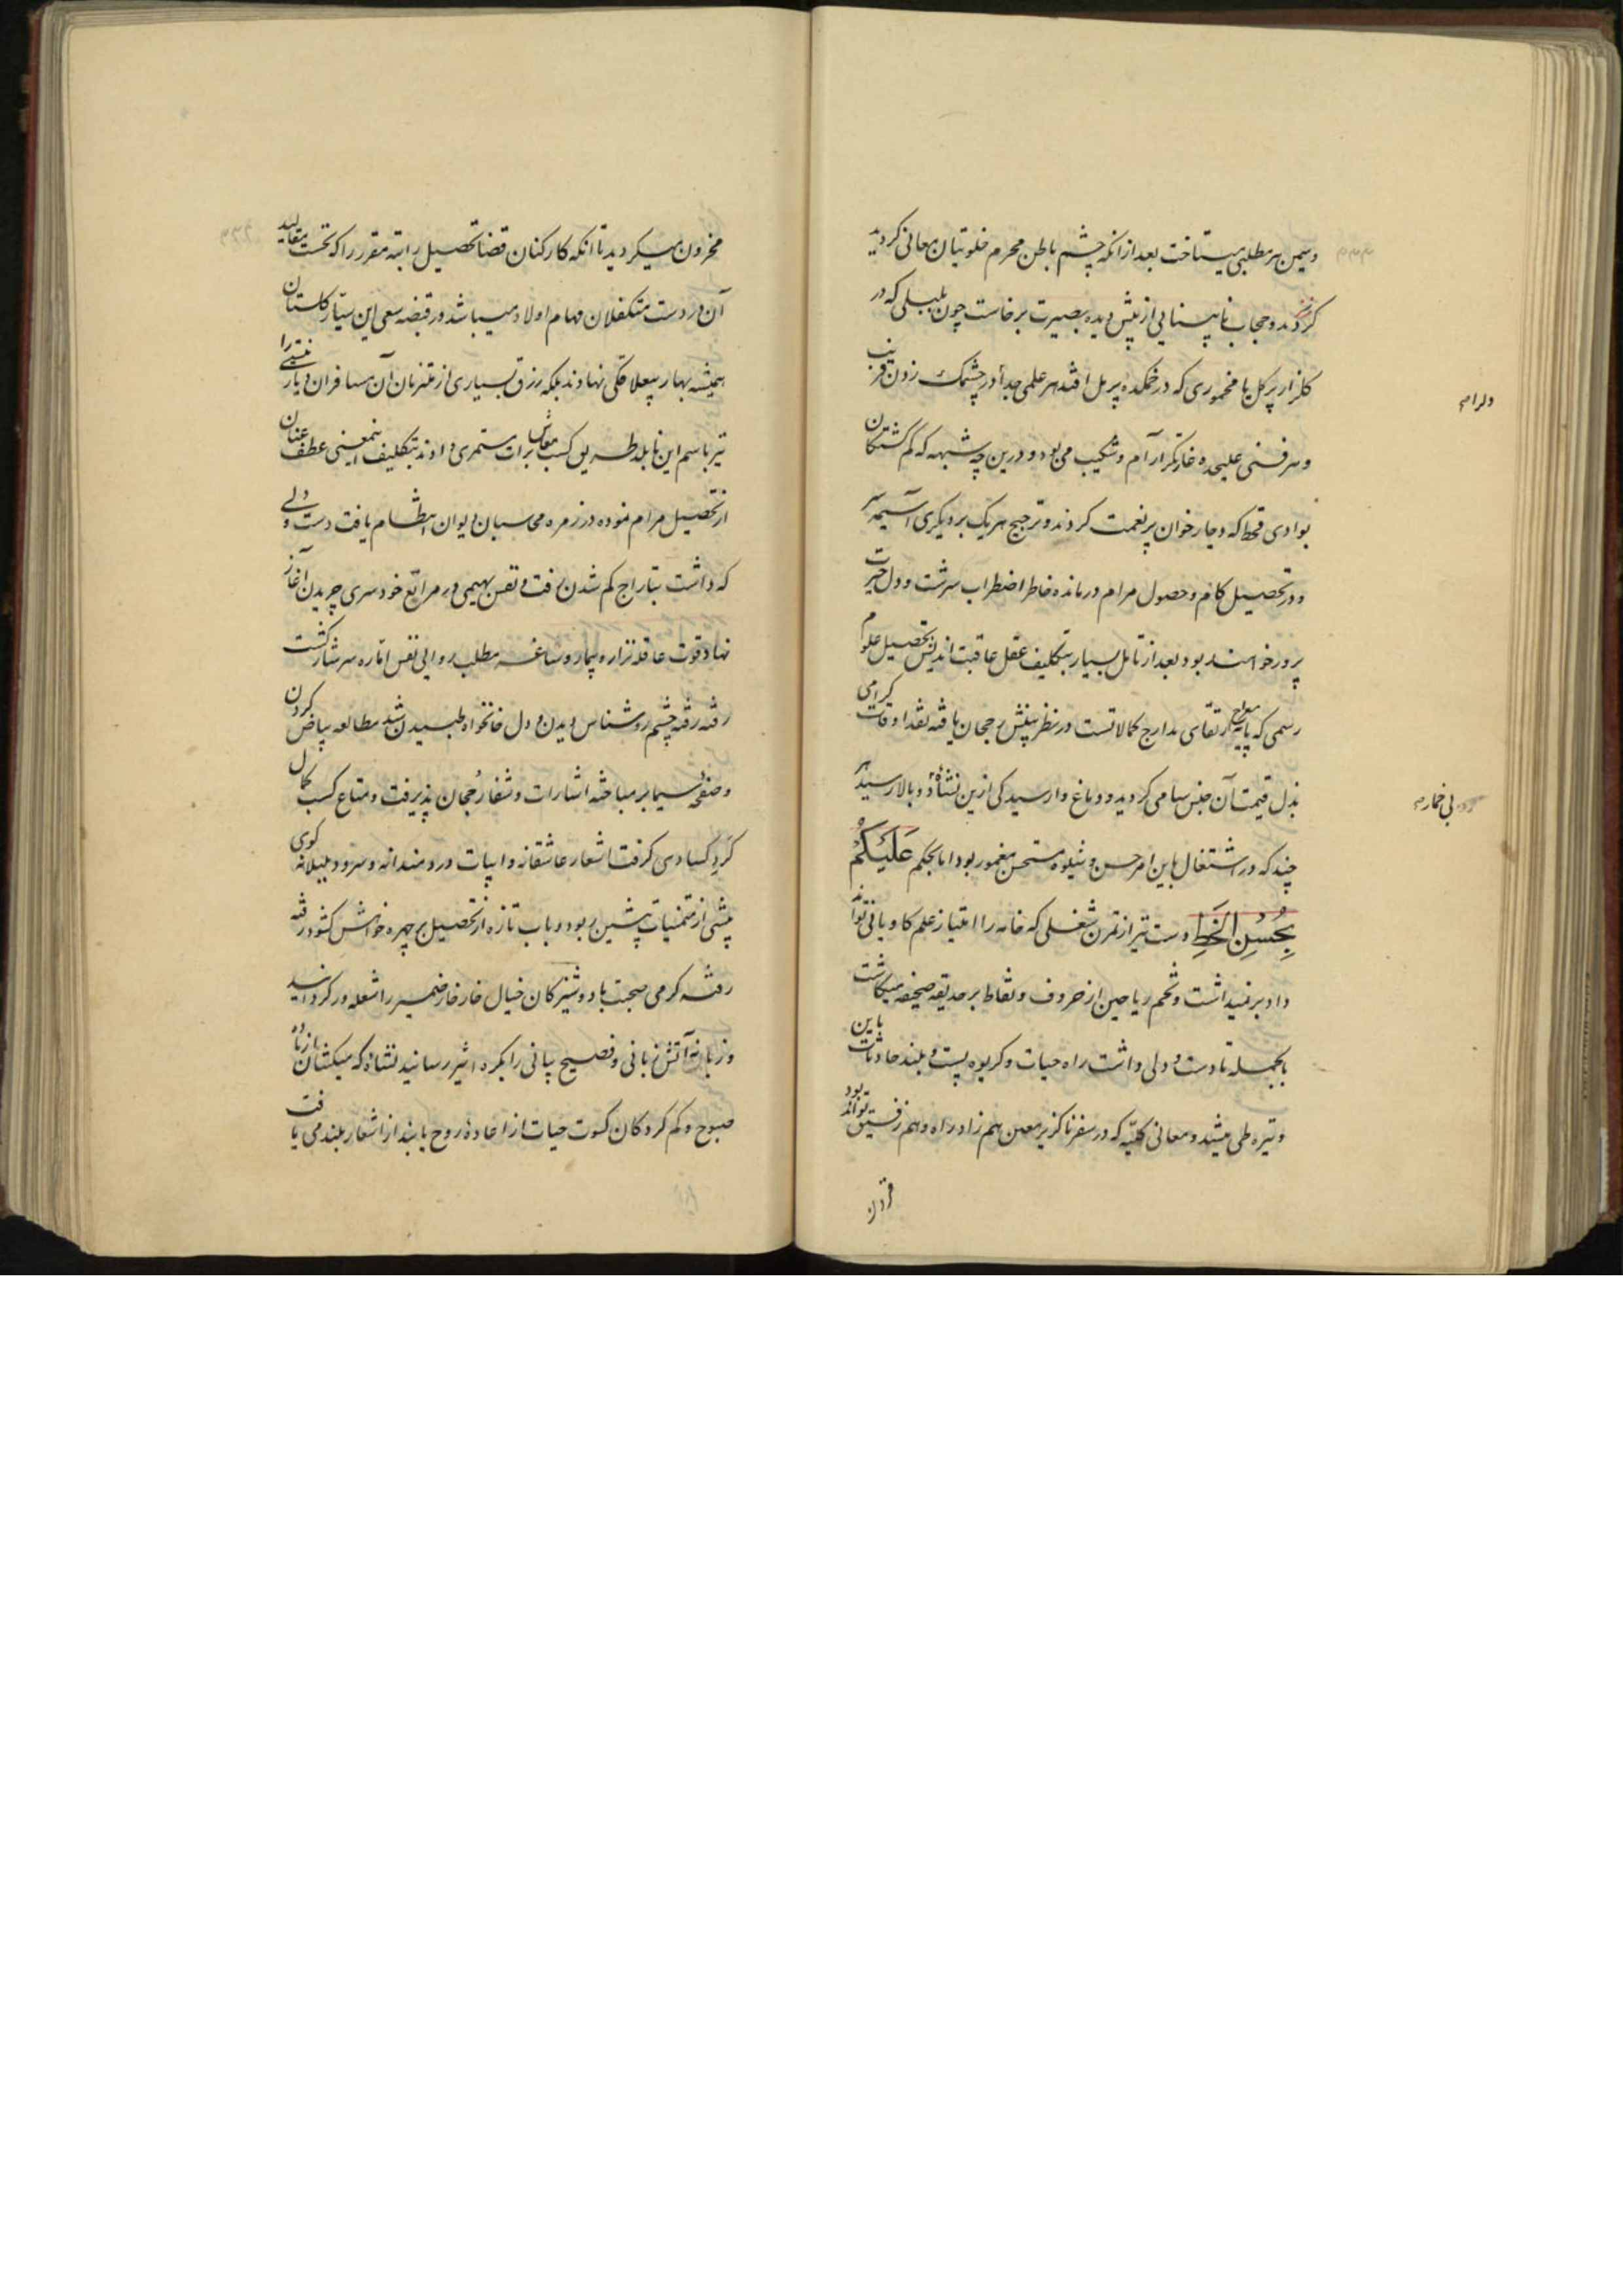 وسیمن هر مطلبی میستاخت بعد از انکه چشم باطن محرم خلوتیان معانی کردید
کردند و حجاب نابینایی از پیش دیده بصیرت برخاست چون بلبلی که در
کلزار پر کل یا مخموری که در خمکده پر مل افتد هر علمی جدا در چشمک زدن فریب
و هر فنی علیحده غارتکر آرام و شکیب می بود و درین چه شبهه که کم کشتکان
بوادی قحط که دچار خوان پر نعمت کردند و ترجیح هر یک بر دیکری آسیمه سر
و در تحصیل کام و حصول مرام درمانده خاطر اضطراب سرشت و دل حیرت
پرور خواهند بود بعد از تامل بسیار بتکلیف عقل عاقبت اندیش تحصیل علوم
رسمی که پایه معراج ارتقای مدارج کمالاتست در نظر بینش رجحان یافته نقد اوقات کرامی
بذل قیمت آن جنس سامی کردید و دماغ وارسیدکی ازین نشاه دو بالا رسید هر
چند که در اشتغال باین امر حسن و شیوه مستحسن مغمور بود اما بحکم عَلَیْکُمْ
بِحُسْنِ الخَطِ دست نیز از تمرن شغلی که خامه را امتیاز علم کاویانی تواند
داد بر نمیداشت و تخم ریاحین از حروف و نقاط بر حدیقه صحیفه میکاشت
بالجمله تا دست و دلی داشت راه حیات و کریوه پست و بلند حادثات باین
وتیره طی میشد و معانی کلیه که در سفر ناکزیر معین هم زاد راه و هم رفیق تواند بود
دلرام
بی خمار
مخزون میکردید تا انکه کارکنان قضا تحصیل راتبه مقرر را که تحت مقالید
آن در دست متکفلان مهام اولاد میباشد در قبضه سعی این سیار کلستان
همیشه بهار بیعلاقکی نهادند بلکه رزق بسیاری از متنزهان آن مسافران دیار نیستی را
نیز باسم این نابلد طریق کسب معاش برات مستمری دادند بتکلیف اینمعنی عطف عنان
از تحصیل مرام نموده در زمره محاسبان دیوان انتظام یافت دست و دلی
که داشت بتاراج کم شدن رفت و نفس بهیمی در مراتع خودسری چریدن آغاز
نهاد قوت عاقله نزار و بیمار و ساغر مطلب روایی نفس اماره سرشار کشت
رفته رفته چشم روشناس دیدن و دل خانخواه طپیدن شد مطالعه بیاض کردن
و صفحه سیما بر مباحثه اشارات و شفا رُجحان پذیرفت و متاع کسب کمال
کَردِ کسادی کرفت اشعار عاشقانه و ابیات دردمندانه و سرود بلبلانه کوی
پیشی از متمنیات پیشین ربود و باب تازه از تحصیل بر چهره خواهش کشود رفته
رفته کرمی صحبت با دوشیزکان خیال خار خار ضمیر را شعله ور کردانید
و زبانه آتش زبانی و فصیح بیانی را بکره اثیر رسانید نشاه که میکشان از باده
صبوح و کم کردکان کسوت حیات از اعاده روح یابند از اشعار بلند می یافت